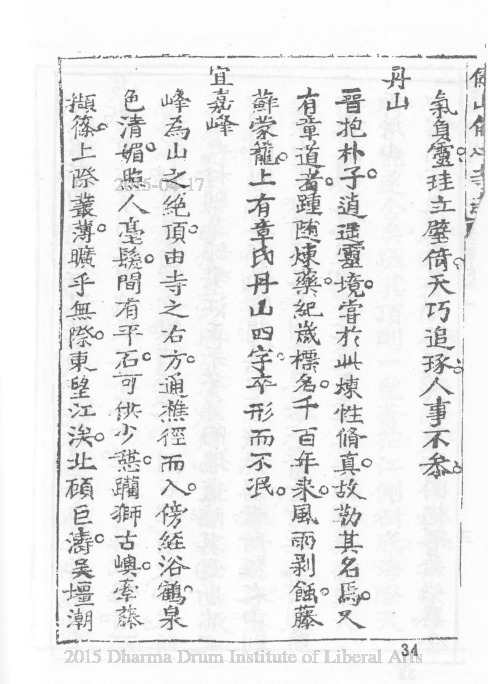 氣負靈珪立壁倚天巧追琢人事不參
丹山
晉抱朴子逍遙靈境嘗於此煉性脩真故勒其名焉又
有章道者踵随煉藥紀歲標名千百年來風雨剥蝕藤
蘇蒙籠上有章氏丹山四字卒形而不泯
宜嘉峰
峰為山之絶頂由寺之右方通樵徑而入傍經浴鶴泉
色清媚照人毫鬚間有平石可供少憇躡獅古嶼牽藤
擷篠上際叢薄曠乎無際東望江涘北顧巨濤吳壇潮
34
2015-04-17
2015 Dharma Drum Institute of Liberal Arts